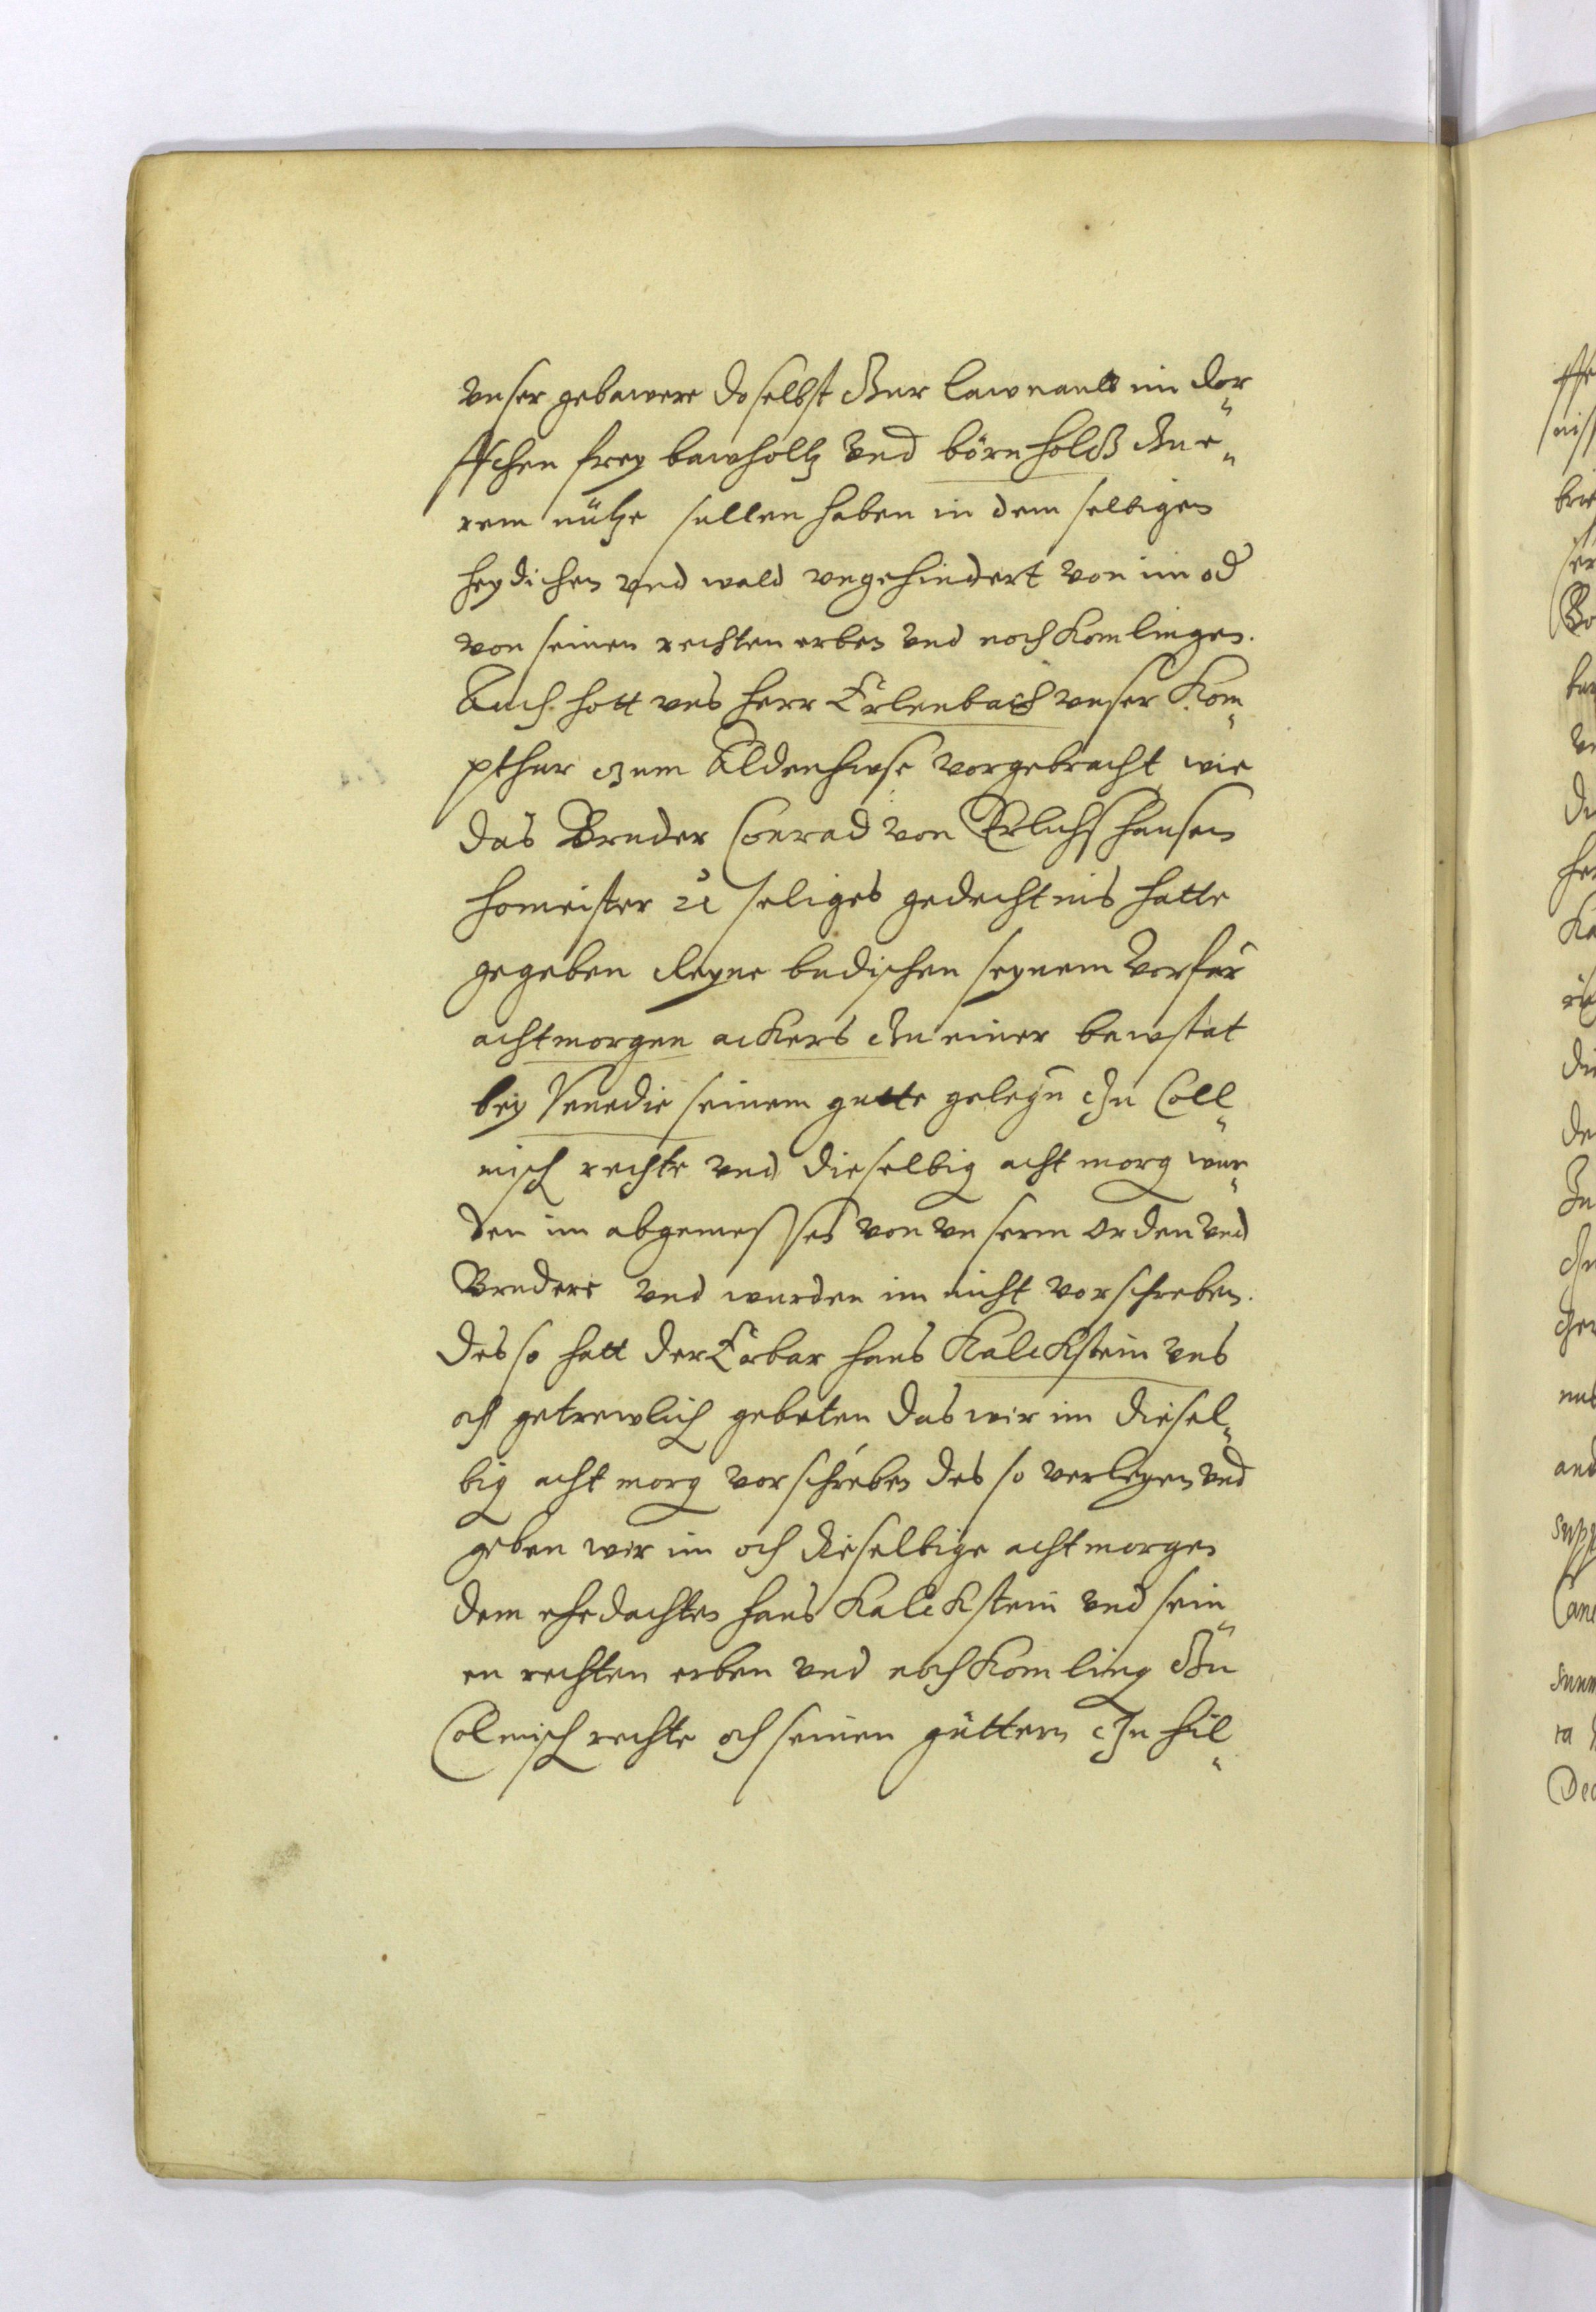 vnser gebawere doselbst czur Lawnault im dor„
ffchen frey bawholtz vnd börnholcz czu e„
rem nütze sullen haben in dem selbigen
heydichen vnd wald vngehindert von im od
von seinen rechten erben vnd nochkomlingen.
Auch hott vns herr Erlenbach vnser Kom„
pthur czum Aldenhwse vorgebracht wie
das Bruder Conrad von Erlichshausen
homeister ꝛc seliges gedechtnis hatte
gegeben Reyne budischen seynem vorfar
achtmorgen ackers czu einer bewstat
bey Venedie seinem gutte gelegn czu Coll„
misch rechte vnd dieselbig acht morg wur„
den im abgemessen von vnserm orden vnd
Brudere vnd wurden im nicht vorschreben.
des so hatt der Erbar hans Kalckstein vns
och getrewlich gebeten das wir im diesel„
big acht morg vorschreben des so verleyen vnd
geben wir im och dieselbige achtmorgen
dem ehedachten hans Kalckstein vnd sein„
en rechten erben vnd nochkomling czu
Colmisch rechte och seinen güttern czu hül„